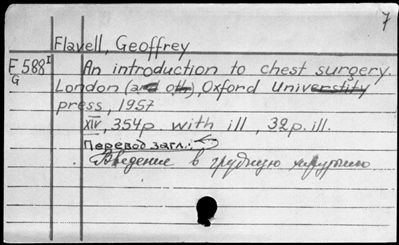 7
Flavell, Geoffrey
F 588 I An introduction to chest surgery.
G London (and oth), Oxford Universtity
press, 1957
XIV, 354p. with ill, 32p. ill.
Перевод загл.:
Введение в грудную хирургию